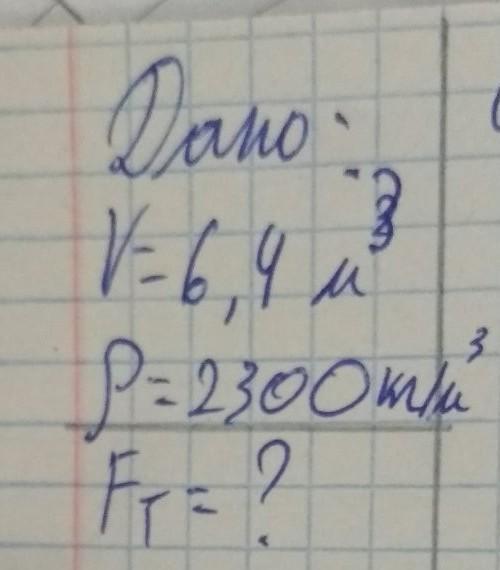 Дано:
V=6,4 м³
ρ=2300кг/м³
Fт=?